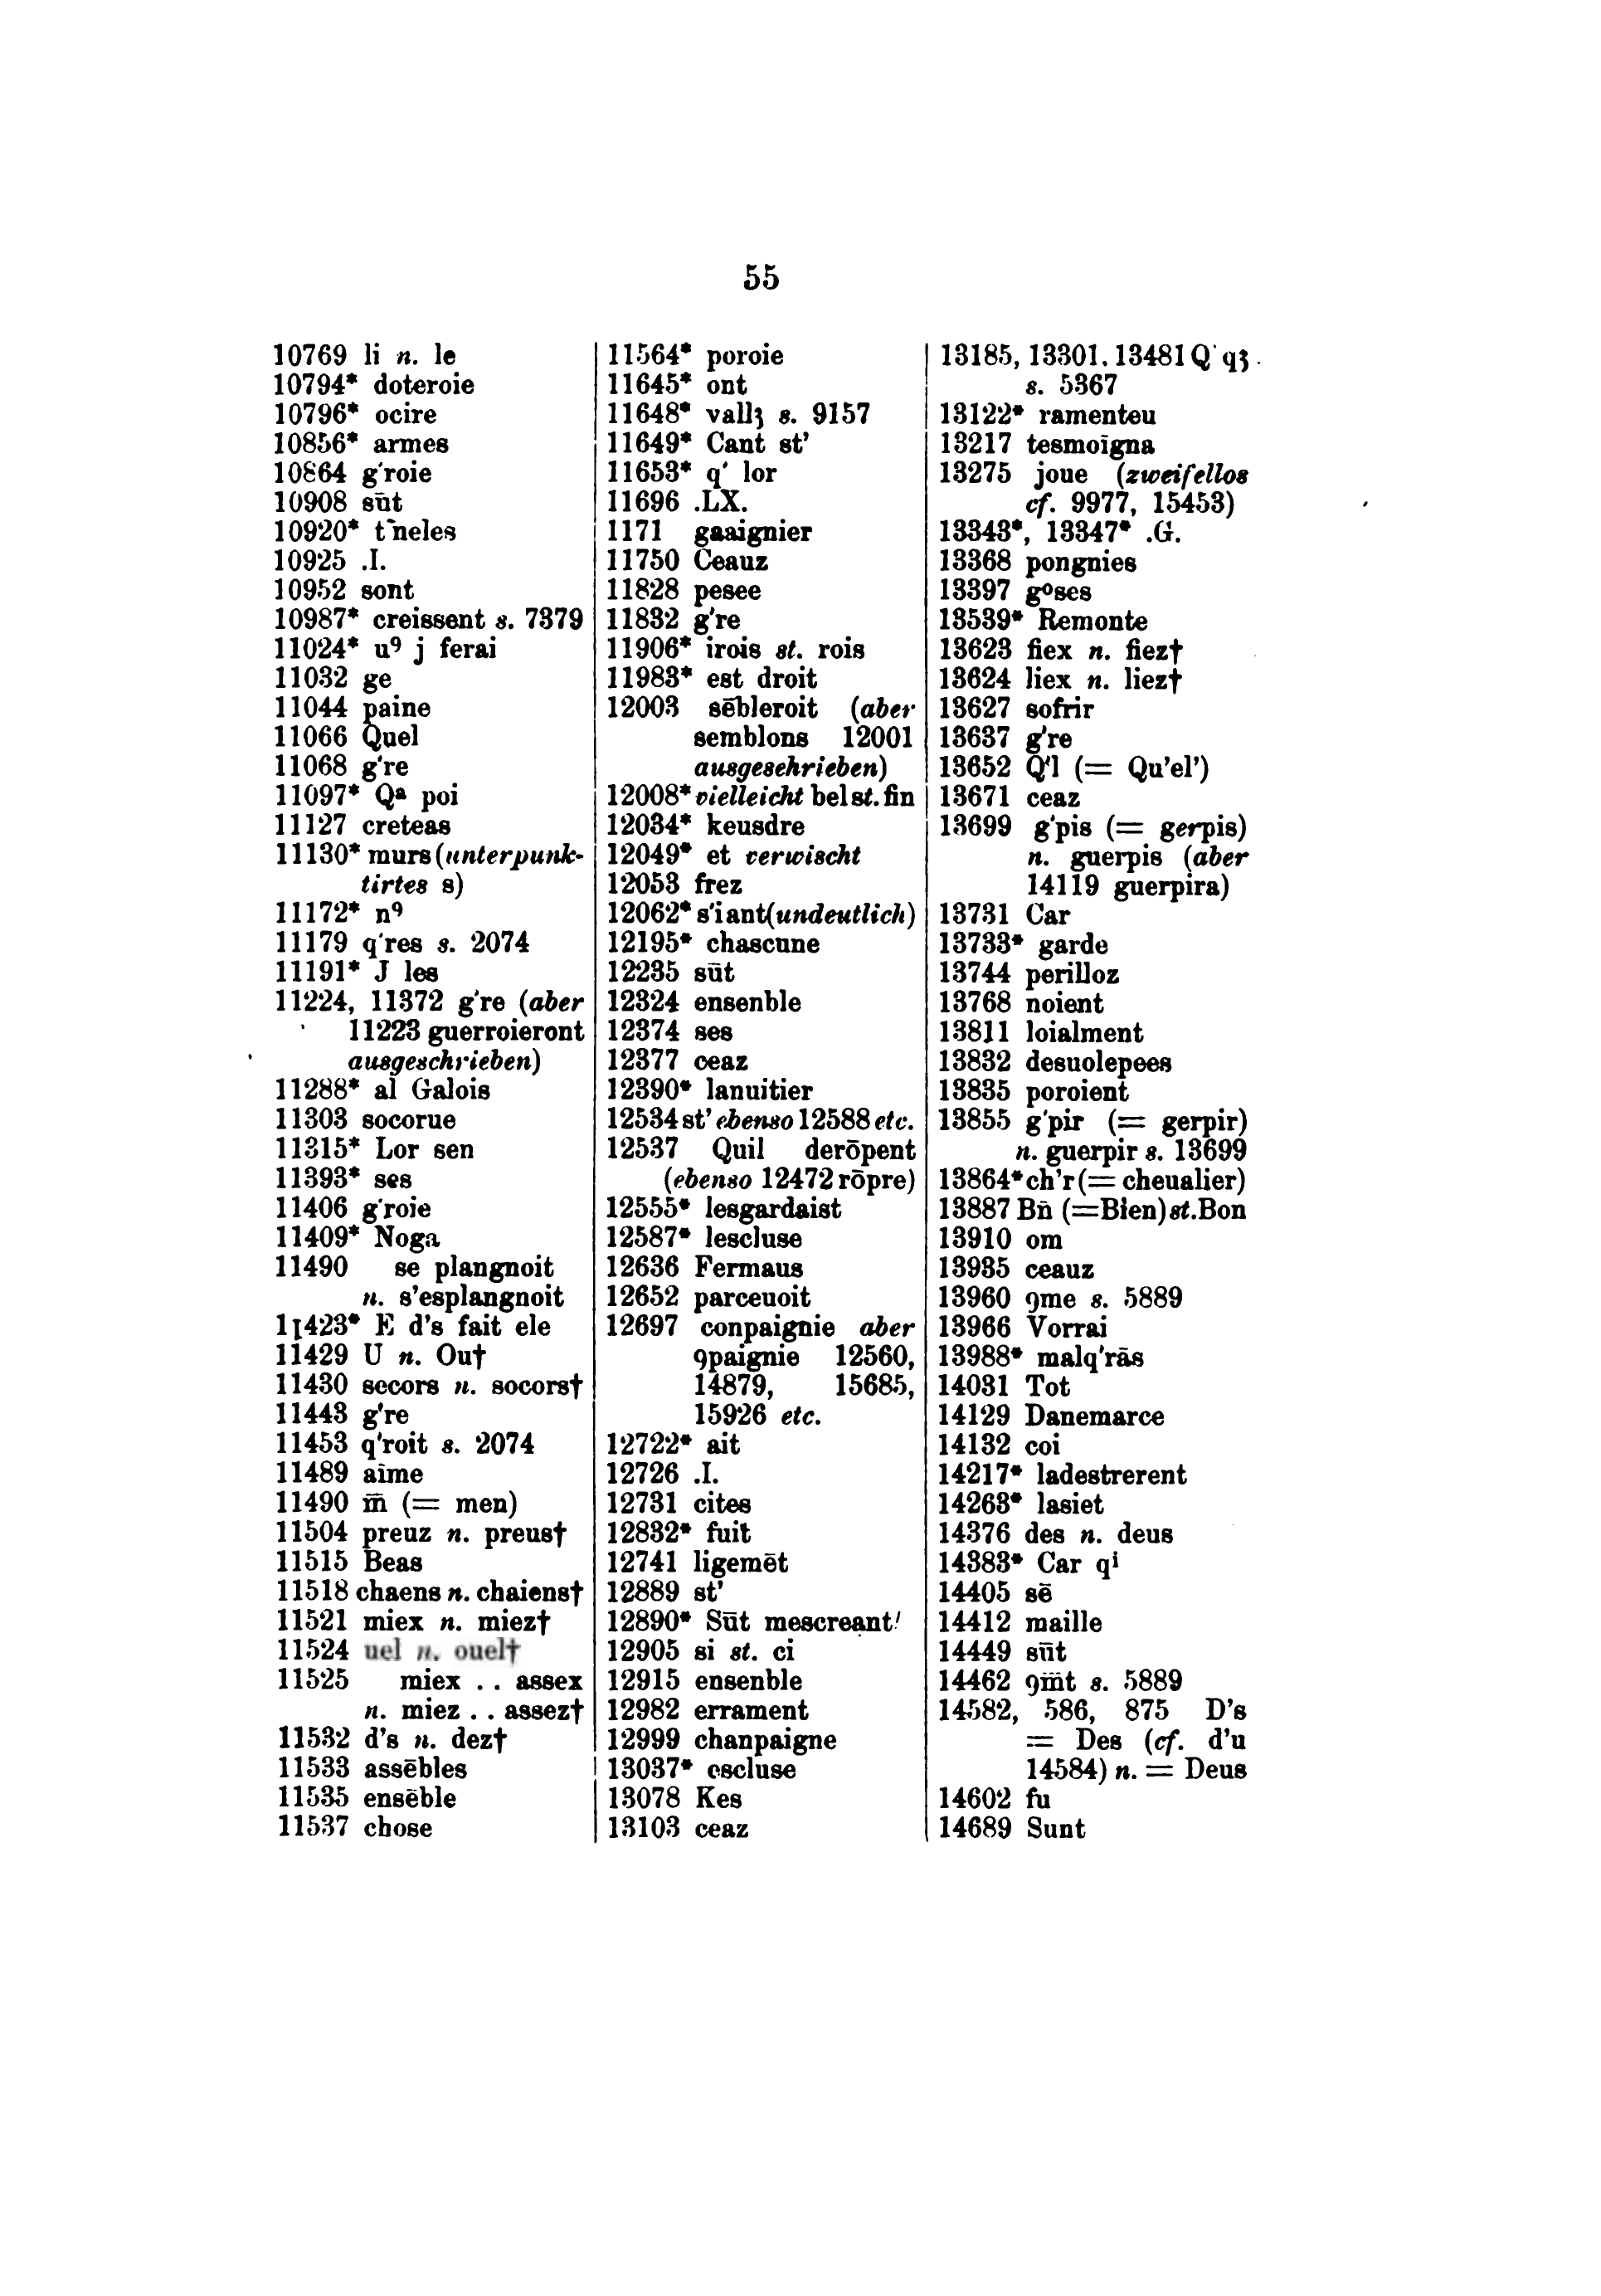 55
10769 li n. le
10794* doteroie
10796* ocire
10856* armes
10864 g'roie
10908 sūt
10920* t˜neles
10925 .I.
10952 sont
10987* creissent s. 7379
11024* uꝰ j ferai
11032 ge
11044 paine
11066 Quel
11068 g're
11097* Qª poi
11127 creteas
11130* murs (unterpunk-
tirtes s)
11172* nꝰ
11179 q'res s. 2074
11191* J les
11224, 11372 g're (aber
11223 guerroieront
ausgeschrieben)
11288* al Galois
11303 socorue
11315* Lor sen
11393* ses
11406 g'roie
11409* Noga
11490 se plangnoit
n. s'esplangnoit
11423* E d's fait ele
11429 U n. Ou†
11430 secors n. socors†
11443 g're
11453 q'roit s. 2074
11489 aime
11490 m̄ (= men)
11504 preuz n. preus†
11515 Beas
11518 chaens n. chaiens†
11521 miex n. miez†
11524 uel n. ouel†
11525 miex . . assex
n. miez . . assez†
11532 d's n. dez†
11533 assēbles
11535 ensēble
11537 chose
11564* poroie
11645* ont
11648* vallʒ s. 9157
11649* Cant st'
11653* q' lor
11696 .LX.
1171 gaaignier
11750 Ceauz
11828 pesee
11832 g're
11906* irois st. rois
11983* est droit
12003 sēbleroit (aber
semblons 12001
ausgesehrieben)
12008* vielleicht bel st. fin
12034* keusdre
12049* et verwischt
12053 frez
12062* s'iant (undeutlich)
12195* chascune
12235 sūt
12324 ensenble
12374 ses
12377 ceaz
12390* lanuitier
12534 st' ebenso 12588 etc.
12537 Quil derōpent
(ebenso 12472 rōpre)
12555* lesgardaist
12587* lescluse
12636 Fermaus
12652 parceuoit
12697 conpaignie aber
9paignie 12560,
14879, 15685,
15926 etc.
12722* ait
12726 .I.
12731 cites
12832* fuit
12741 ligemēt
12889 st'
12890* Sūt mescreant'
12905 si st. ci
12915 ensenble
12982 errament
12999 chanpaigne
13037* escluse
13078 Kes
13103 ceaz
13185, 13301. 13481 Q' qʒ
s. 5367
13122* ramenteu
13217 tesmoīgna
13275 joue (zweifellos
cf. 9977, 15453)
13343*, 13347* .G.
13368 pongnies
13397 gºses
13539* Remonte
13623 fiex n. fiez†
13624 liex n. liez†
13627 sofrir
13637 g're
13652 Q'l (= Qu'el')
13671 ceaz
13699 g'pis (= gerpis)
n. guerpis (aber
14119 guerpira)
13731 Car
13733* garde
13744 perilloz
13768 noient
13811 loialment
13832 desuolepees
13835 poroient
13855 g'pir (= gerpir)
n. guerpir s. 13699
13864* ch'r (= cheualier)
13887 Bn̄ (=Bien) st. Bon
13910 om
13935 ceauz
13960 9me s. 5889
13966 Vorrai
13988* malq'rās
14031 Tot
14129 Danemarce
14132 coi
14217* ladestrerent
14263* lasiet
14376 des n. deus
14383* Car qⁱ
14405 sē
14412 maille
14449 sūt
14462 9m̄t s. 5889
14582, 586, 875 D's
= Des (cf. d'u
14584) n. = Deus
14602 fu
14689 Sunt